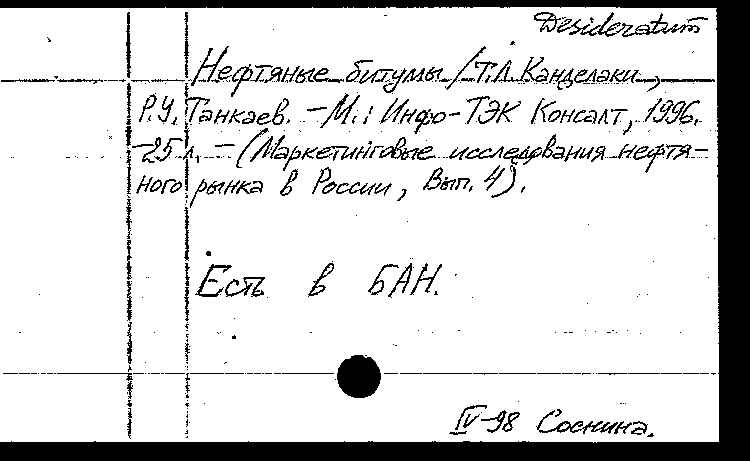 Desideratum
Нефтяные битумы / Т.Л. Канделаки,
Р.У. Танкаев. – М.: Инфо-ТЭК Консалт, 1996.
– 25 л. – (Маркетинговые исследования нефтя-
ного рынка в России, Вып. 4).
Есть в БАН.
IV-98 Соснина.